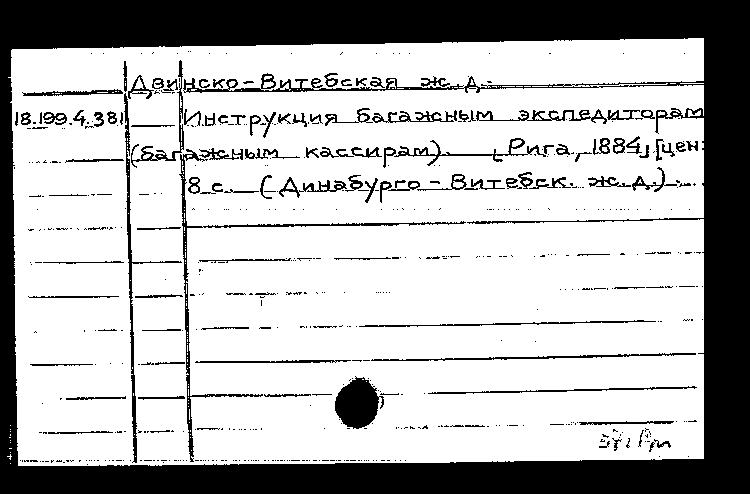 Двинско-Витебская ж. д.
18.199.4.381 Инструкция багажным экспедиторам
(багажным кассирам). [Рига, 1884] [цен:
8 с. (Динабурго-Витебск. ж. д.).